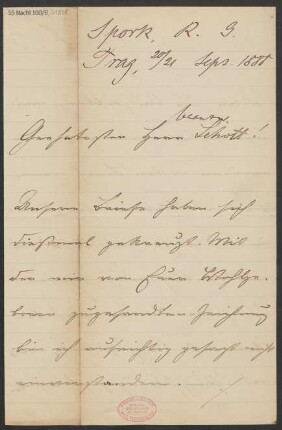 55 Nachl 100/B,
Spork, R. G.
Prag, 20/21 Sept. 1888
Geehrtester Herr Schott!
Unsere Briefe haben sich
dießmal gekreuzt. Mit
der mir von Euer Wohlge-
boren zugesandten Zeichnung
bin ich aufrichtig gesagt nicht
einverstanden.